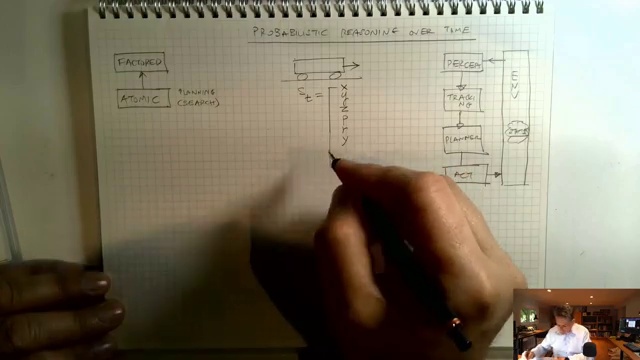 PROBABILISTIC REASONING OVER TIME
FACTORED
ATOMIC
PLANNING
(SEARCH)
x
y
z
p
r
y
PERCEPT
TRACK
ING
PLANNER
ACT
ENV